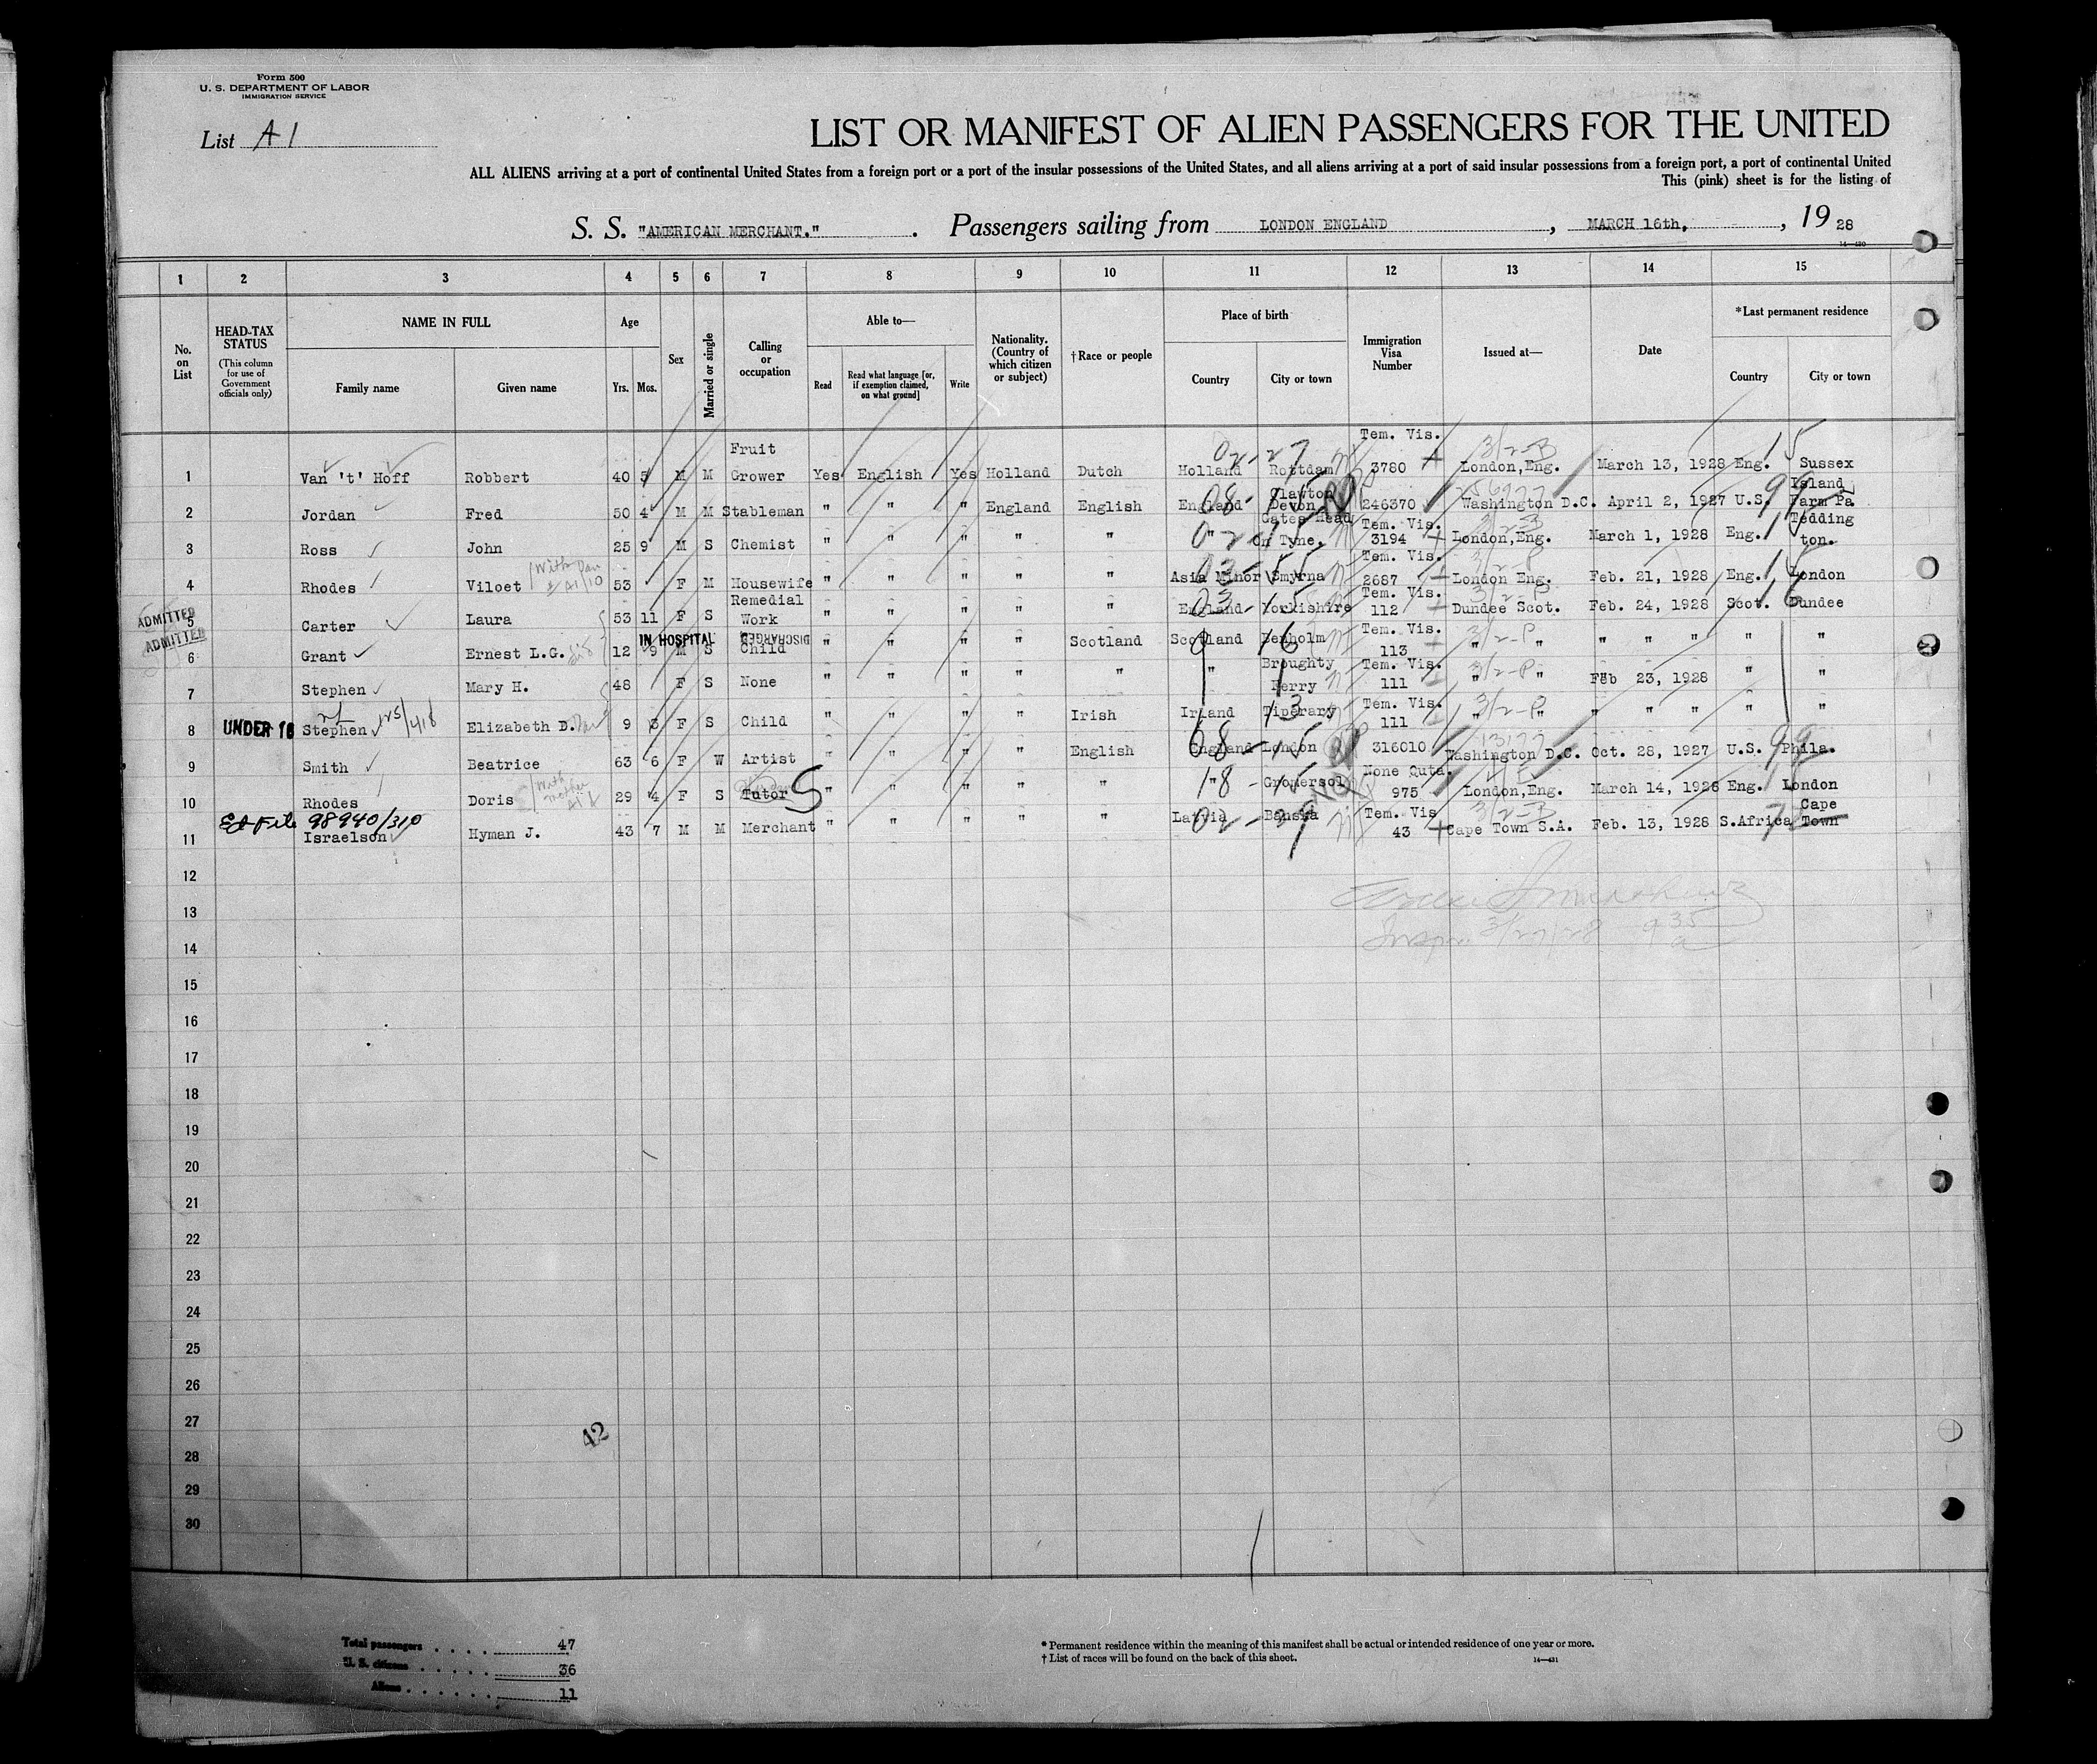 Form 500
U. S. DEPARTMENT OF LABOR
IMMIGRATION SERVICE
List A1
LIST OR MANIFEST OF ALIEN PASSENGERS FOR THE UNITED
ALL ALIENS arriving at a port of continental United States from a foreign port or a port of the insular possessions of the United States, and all aliens arriving at a port of said insular possessions from a foreign port, a port of continental United
This (pink) sheet is for the listing of
S. S. "AMERICAN MERCHANT." . Passengers sailing from LONDON ENGLAND , MARCH 16th, , 19 28
14—430
1 2 3 4 5 6 7 8 9 10 11 12 13 14 15
No. on List
HEAD-TAX STATUS
(This column for use of Government officials only)
NAME IN FULL
Family name Given name
Age
Yrs. Mos.
Sex
Married or single
Calling or occupation
Able to—
Read
Read what language [or, if exemption claimed, on what ground]
Write
Nationality. (Country of which citizen or subject)
†Race or people
Place of birth
Country City or town
Immigration Visa Number
Issued at—
Date
*Last permanent residence
Country City or town
1 Van 't' Hoff Robbert 40 5 M M Fruit Grower Yes English Yes Holland Dutch Holland Rottdam Tem. Vis. 3780 London,Eng. March 13, 1928 Eng. Sussex
2 Jordan Fred 50 4 M M Stableman " " " England English England Clawton Devon 246370 Washington D.C. April 2, 1927 U.S. Island Farm Pa
3 Ross John 25 9 M S Chemist " " " " " " Gates Head On Tyne. Tem. Vis. 3194 London,Eng. March 1, 1928 Eng. Tedding ton.
4 Rhodes Viloet 53 F M Housewife " " " " " Asia Minor Smyrna Tem. Vis. 2687 London Eng. Feb. 21, 1928 Eng. London
ADMITTED
5 Carter Laura 53 11 F S Remedial Work " " " " " England Yorkishire Tem. Vis. 112 Dundee Scot. Feb. 24, 1928 Scot. Dundee
ADMITTED
IN HOSPITAL DISCHARGED
6 Grant Ernest L.G. 12 9 M S Child " " " " Scotland Scotland Benholm Tem. Vis. 113 " " " " " " "
7 Stephen Mary H. 48 F S None " " " " " " Broughty Ferry Tem. Vis. 111 " " Feb 23, 1928 " "
8 UNDER 16 Stephen Elizabeth D. 9 3 F S Child " " " " Irish Irland Tiperary Tem. Vis. 111 " " " " " " "
9 Smith Beatrice 63 6 F W Artist " " " " English England London 316010 Washington D.C. Oct. 28, 1927 U.S. Phila.
10 Rhodes Doris 29 4 F S Tutor " " " " " " None Quta. 975 London,Eng. March 14, 1928 Eng. London
98940/310
11 Israelson Hyman J. 43 7 M M Merchant " " " " " Latvia Banska Tem. Vis 43 Cape Town S.A. Feb. 13, 1928 S.Africa Cape Town
12
13
14
15
16
17
18
19
20
21
22
23
24
25
26
27
28
29
30
42
Total passengers 47
U. S. citizens 36
Aliens 11
* Permanent residence within the meaning of this manifest shall be actual or intended residence of one year or more.
† List of races will be found on the back of this sheet.
14—431